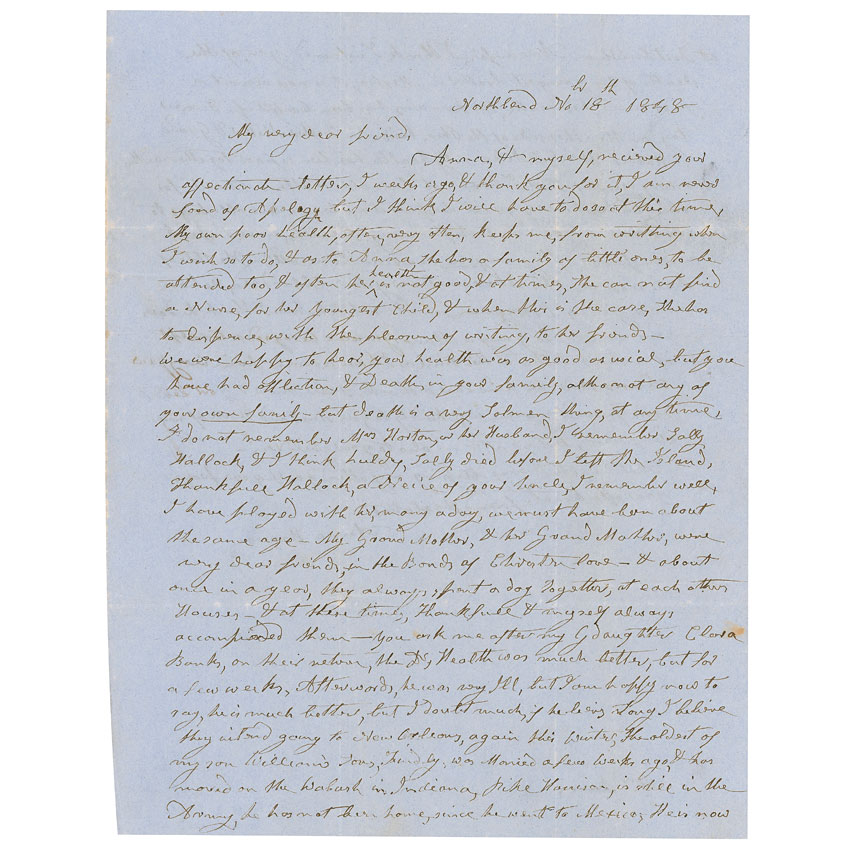 Northbend No. br 18 th 1848
My very dear friend,
Anna, & myself, recieved your
affectionate letters, weeks ago, & thank you for it, I am never
foond of Apology but I think I will have to do so at this time,
My own poor health, often, very often, keeps me, from writhing when
I wish so to do, & as to Anna she has a family of little ones, to be
attended too, & often her health is not good, & at times, She can not find
a Nurse, for her Youngest Child, & when this is the case, She has
to dispence, with the pleasure of writing, to her friends –
we were happy to hear, your health was as good as usial, but you
have had affliction, & Death, in your family, altho not any of
your own family – but death is a very Solmen thing, at any time,
I do not remember Mrs Horton, or her Husband, I remember Sally
Hallock, & I think huldy, Sally died before I left the Island,
Thankfull Hallock, a Neice of your uncle, I remember well,
I have played with her, many a day, we must have been about
the same age – My Grand Mother, & her Grand Mother, were
very dear friends, in the Bonds of love – & about
once in a year, they always, spent a day together, at each others
Houses – & at these times, Thankfull & myself always
them – You ask me after my G daughter Clara
Banks, on their return, the Drs Health was much better, but for
a few weeks, Afterwards, he was very Ill, but I am happy now to
say, he is much better, but I doubt much, if he lives long, I believe
they intend going to New Orleans, again this winter, The oldest of
my son William's Sons, was Married a few weeks ago & has
moved on the Wabash in, Indiana, Pike Harrison, is still in the
Army, he has not been home, since he went to Mexico, He is now